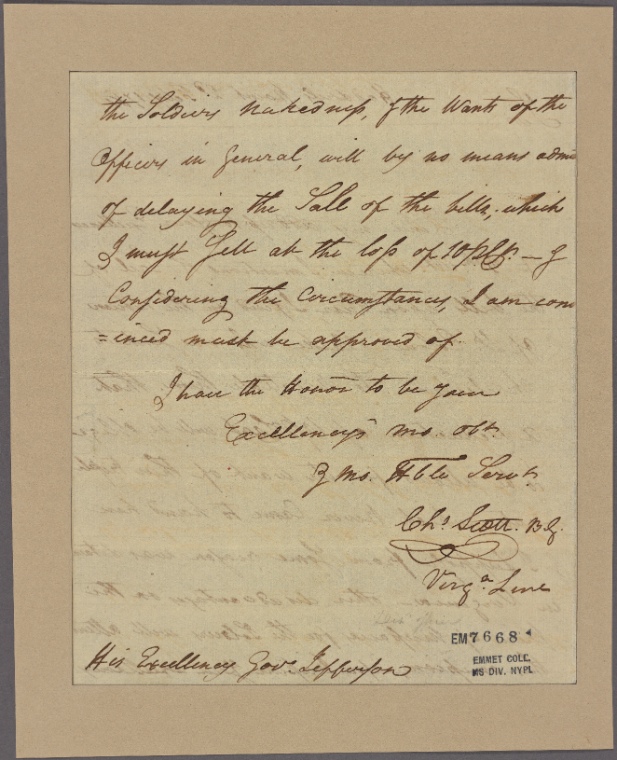 the Soldiers Nakedness, & the Wants of the
Officers in General, will by no means admi
of delaying the Sall of the bills, which
I must Sell at the loss of 10 pCt. — &
Considering the Circumstances, I am con
=inced must be approved of.
I have the Honor to be your
Excellencys mo. Obt.
& mo. Hble Servt.
Chs. Scott. B.G.
Virga. Line
His Excellency Govr. Jefferson
EM7668
EMMET COLL.
MS DIV. NYPL